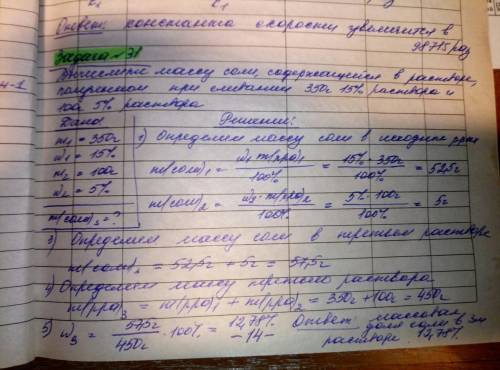 Ответ: константа скорости увеличится в
98715 раз
Задача №31
Вычислите массу соли, содержащейся в растворе,
полученном при сливании 350г 15% раствора и
100г 5% раствора
Дано Решение:
m₁ = 350г 1) Определяем массу соли в исходных р-рах
ω₁ = 15% m(соли)₁ = ω₁·m(р-ра)₁ / 100% = 15%·350г / 100% = 52,5г
m₂ = 100г
ω₂ = 5% m(соли)₂ = ω₂·m(р-ра)₂ / 100% = 5%·100г / 100% = 5г
m(соли)₃ = ?
3) Определяем массу соли в третьем растворе
m(соли)₃ = 52,5г + 5г = 57,5г
4) Определяем массу третьего раствора
m(р-ра)₃ = m(р-ра)₁ + m(р-ра)₂ = 350г + 100г = 450г
5) ω₃ = 57,5г / 450г · 100% = 12,78% Ответ: массовая
доля соли в 3м
-14- растворе 12,78%